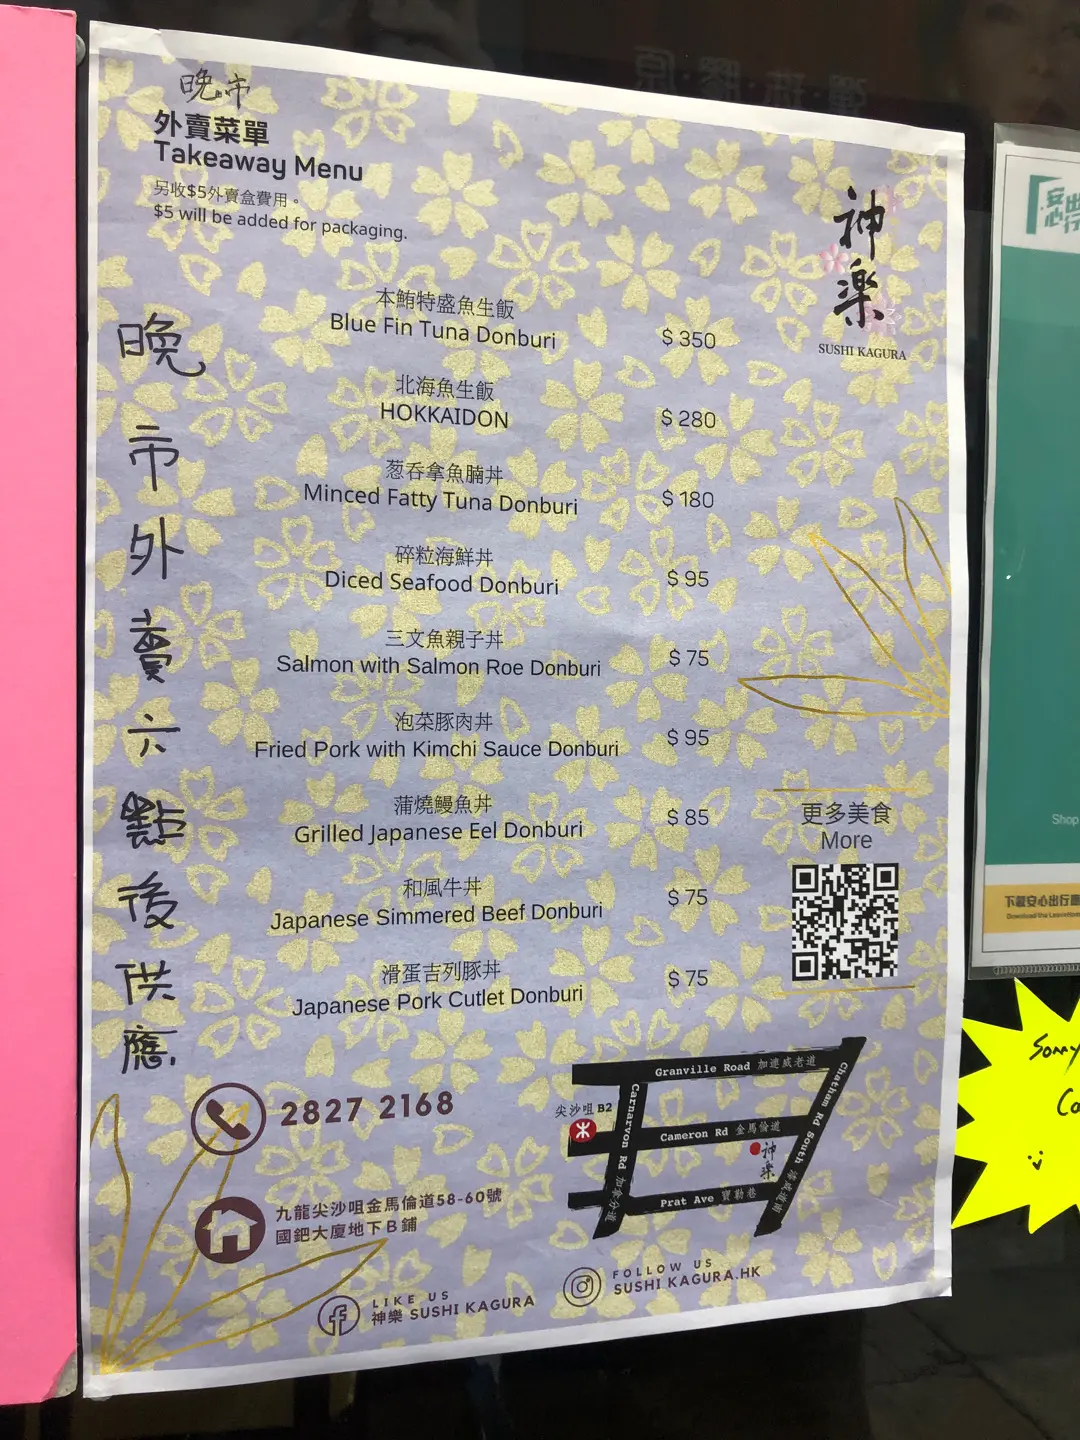 晚市
外賣菜單
Takeaway Menu
另收$5外賣盒費用。
$5 will be added for packaging.
神楽
SUSHI KAGURA
晚市外賣六點後供應
本鮪特盛魚生飯
Blue Fin Tuna Donburi
$ 350
北海魚生飯
HOKKAIDON
$ 280
葱吞拿魚腩丼
Minced Fatty Tuna Donburi
$ 180
碎粒海鮮丼
Diced Seafood Donburi
$ 95
三文魚親子丼
Salmon with Salmon Roe Donburi
$ 75
泡菜豚肉丼
Fried Pork with Kimchi Sauce Donburi
$ 95
蒲燒鰻魚丼
Grilled Japanese Eel Donburi
$ 85
和風牛丼
Japanese Simmered Beef Donburi
$ 75
滑蛋吉列豚丼
Japanese Pork Cutlet Donburi
$ 75
更多美食
More
2827 2168
九龍尖沙咀金馬倫道58-60號
國鈀大廈地下B鋪
Granville Road 加連威老道
尖沙咀 B2
Carnarvon Rd 加拿分道
Cameron Rd 金馬倫道
神楽
Prat Ave 寶勒巷
Chatham Rd South 漆咸道南
LIKE US
神樂 SUSHI KAGURA
FOLLOW US
SUSHI KAGURA.HK
安心出行
Shop
下載安心出行
Download the LeaveHome
Sorry
Co